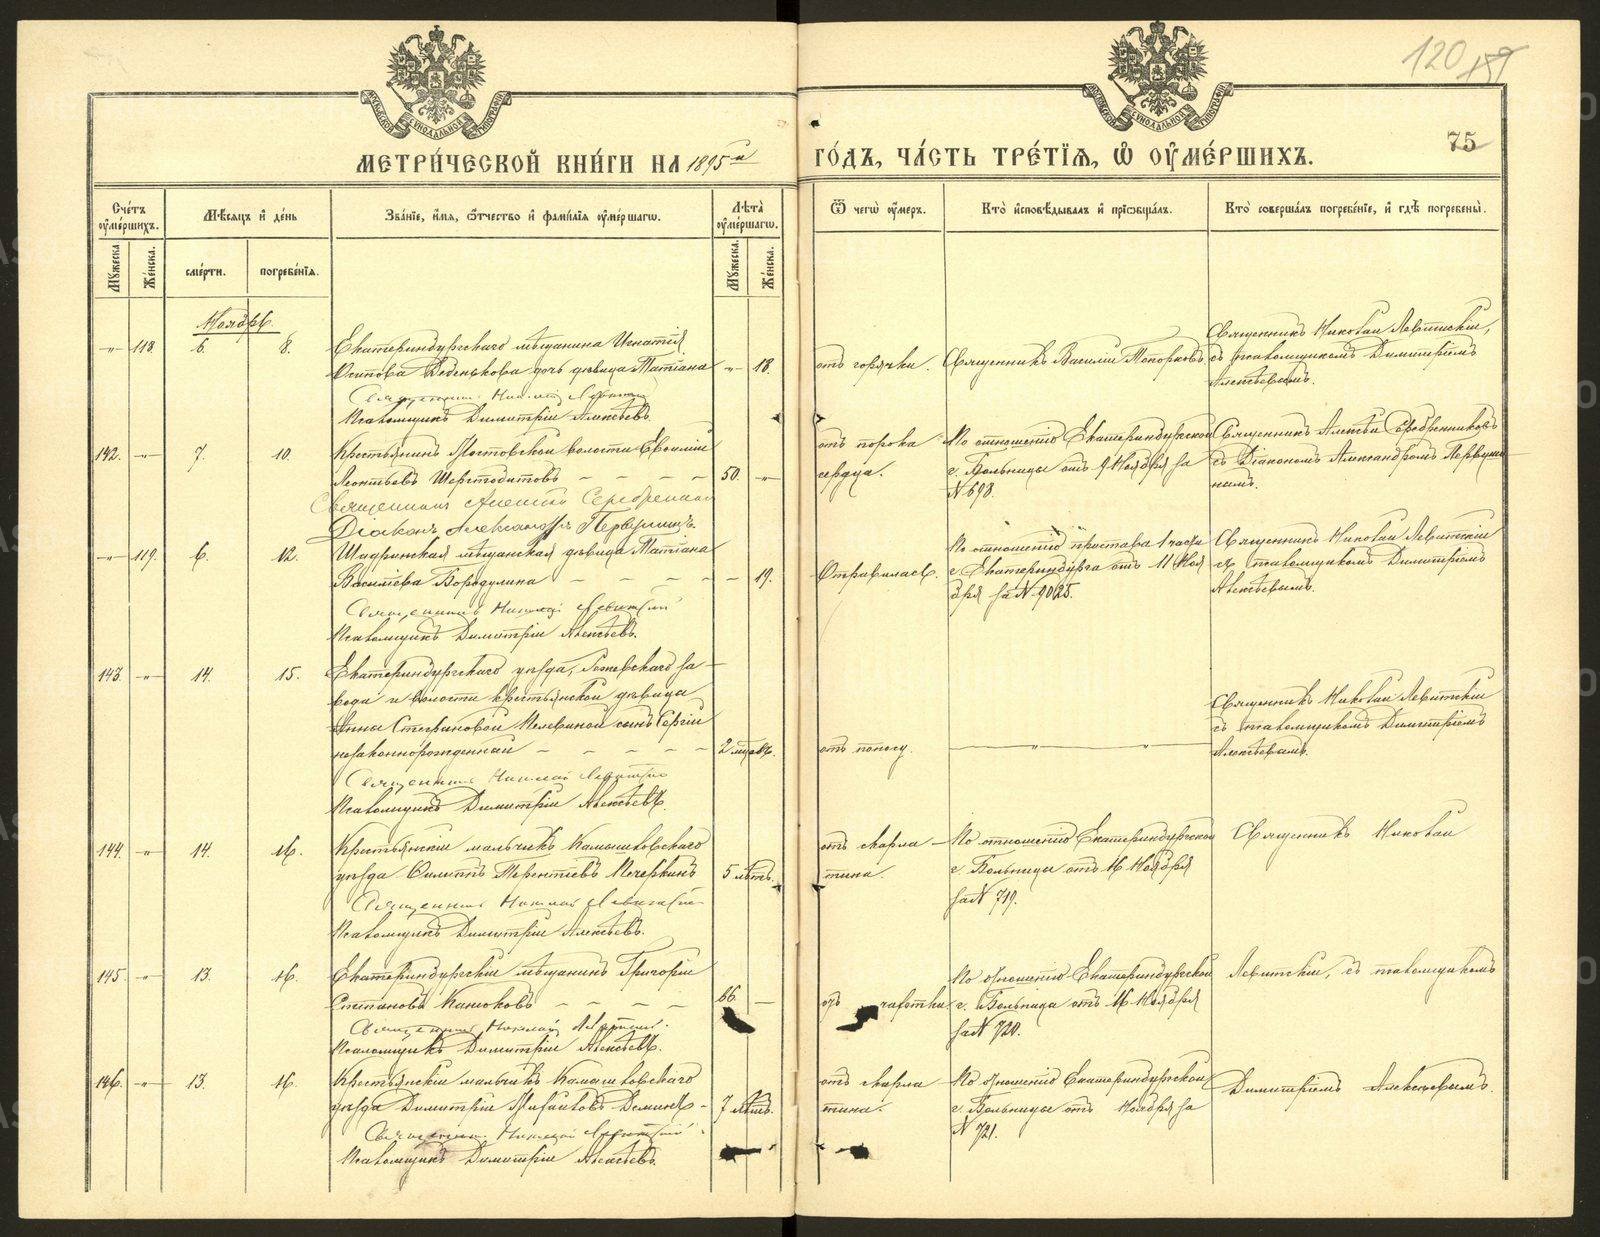 120
75
МЕТРИ́ЧЕСКОЙ КНИ́ГИ НА 1895й
ГО́ДЪ, ЧА́СТЬ ТРЕ́ТІѦ, Ѡ ОУМЕ́РШИХЪ.
Сче́тъ оумершихъ.
Мꙋжеска
Же́нска.
Мѣсѧцъ и де́нь
сме́рти.
погребе́нїѧ.
Зва́нїе, и́мѧ, ѻтчество и фами́лїѧ оуме́ршагѡ.
Лѣта̀ оуме́ршагѡ.
Мꙋжеска.
Же́нска.
Ѿ чегѡ̀ оу́меръ.
Кто̀ и҆сповѣ́дывалъ и прїѡбща́лъ.
Кто̀ соверша́лъ погребе́нїе, и гдѣ̀ погребены̀.
Ноябрь
-"- 118. 6. 8.
Екатеринбургскаго мѣщанина Игнатія
Осипова Веденькова дочь дѣвица Татіана -"- 18.
Священникъ Николай Левитскій
Псаломщикъ Димитрій Алексѣевъ.
отъ горячки.
Священникъ Василій Топорковъ
Священникъ Николай Левитскій,
съ псаломщикомъ Димитріемъ
Алексѣевымъ.
142. -"- 7. 10.
Крестьянинъ волости
Леонтьевъ 50. -"-
Священникъ Алексій Серебренниковъ
Діаконъ Александръ Первушинъ.
отъ порока
сердца.
По отношенію Екатеринбургской
г. Больницы отъ 9 Ноября за
№ 698.
Священникъ Алексѣй Серебренниковъ
съ Діакономъ Александромъ Первуши-
нымъ.
-"- 119. 6. 12.
Шадринская мѣщанская дѣвица Татіана
Василіева Бородулина - 19.
Священникъ Николай Левитскій
Псаломщикъ Димитрій Алексѣевъ.
Отравилась.
По отношенію пристава 1 части
г. Екатеринбурга отъ 11 Ноя
бря за № 9025.
Священникъ Николай Левитскій
съ псаломщикомъ Димитріемъ
Алексѣевымъ.
143. -"- 14. 15.
Екатеринбургскаго уѣзда, Режевскаго за-
вода и волости крестьянской дѣвицы
Анны Стефановой сынъ Сергій
незаконнорожденный 2 мѣсяц.
Священникъ Николай Левитскій
Псаломщикъ Димитрій Алексѣевъ.
отъ поносу.
-"- -"-
Священникъ Николай Левитскій
съ псаломщикомъ Димитріемъ
Алексѣевымъ.
144. -"- 14. 16.
Крестьянскій мальчикъ Камышловскаго
уѣзда Филиппъ Терентіевъ Печеркинъ 5 лѣтъ.
Священникъ Николай Левитскій
Псаломщикъ Димитрій Алексѣевъ.
отъ скарла-
тина.
По отношенію Екатеринбургской
г. Больницы отъ 16 Ноября
за № 719.
Священникъ Николай
145 -"- 13. 16.
Екатеринбургскій мѣщанинъ Григорій
Степановъ Канюковъ 66. -
Священникъ Николай Левитскій.
Псаломщикъ Димитрій Алексѣевъ.
отъ чахотки.
По отношенію Екатеринбургской
г. Больницы отъ 16 Ноября
за № 720.
Левитскій, съ псаломщикомъ
146. -"- 13. 16.
Крестьянскій мальчикъ Камышловскаго
уѣзда Димитрій 7 лѣтъ.
Священникъ Николай Левитскій
Псаломщикъ Димитрій Алексѣевъ.
отъ скарла
тина.
По отношенію Екатеринбургской
г. Больницы отъ Ноября за
№ 721.
Димитріемъ Алексѣевымъ.